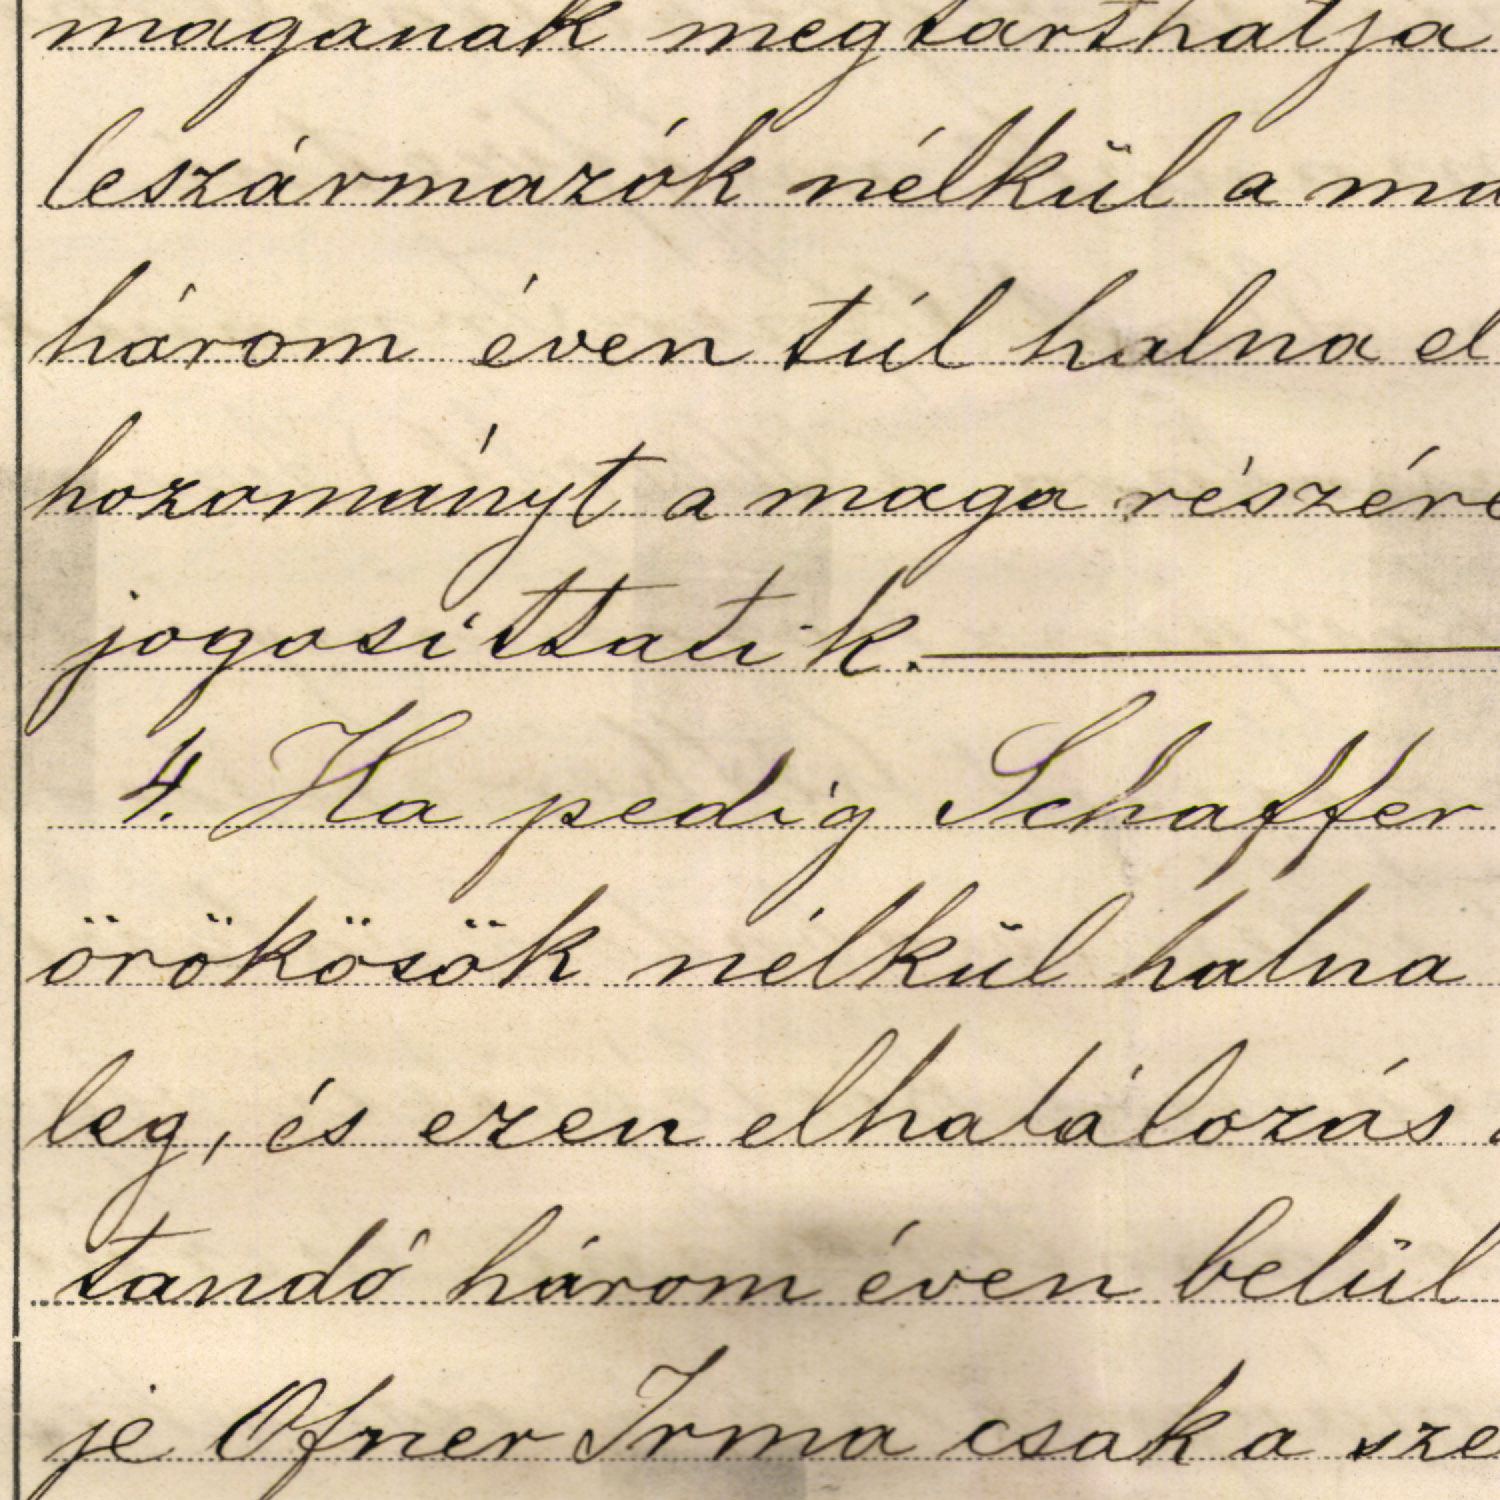 magának megtarthatja
leszármazók nélkül a
három éven túl halna el
hozományt a maga részére
jogosittatik.
4. Ha pedig Schaffer
örökösök nélkül halna
leg, és ezen elhalálozás
tandó három éven belül
je Ofner Irma csak a sze